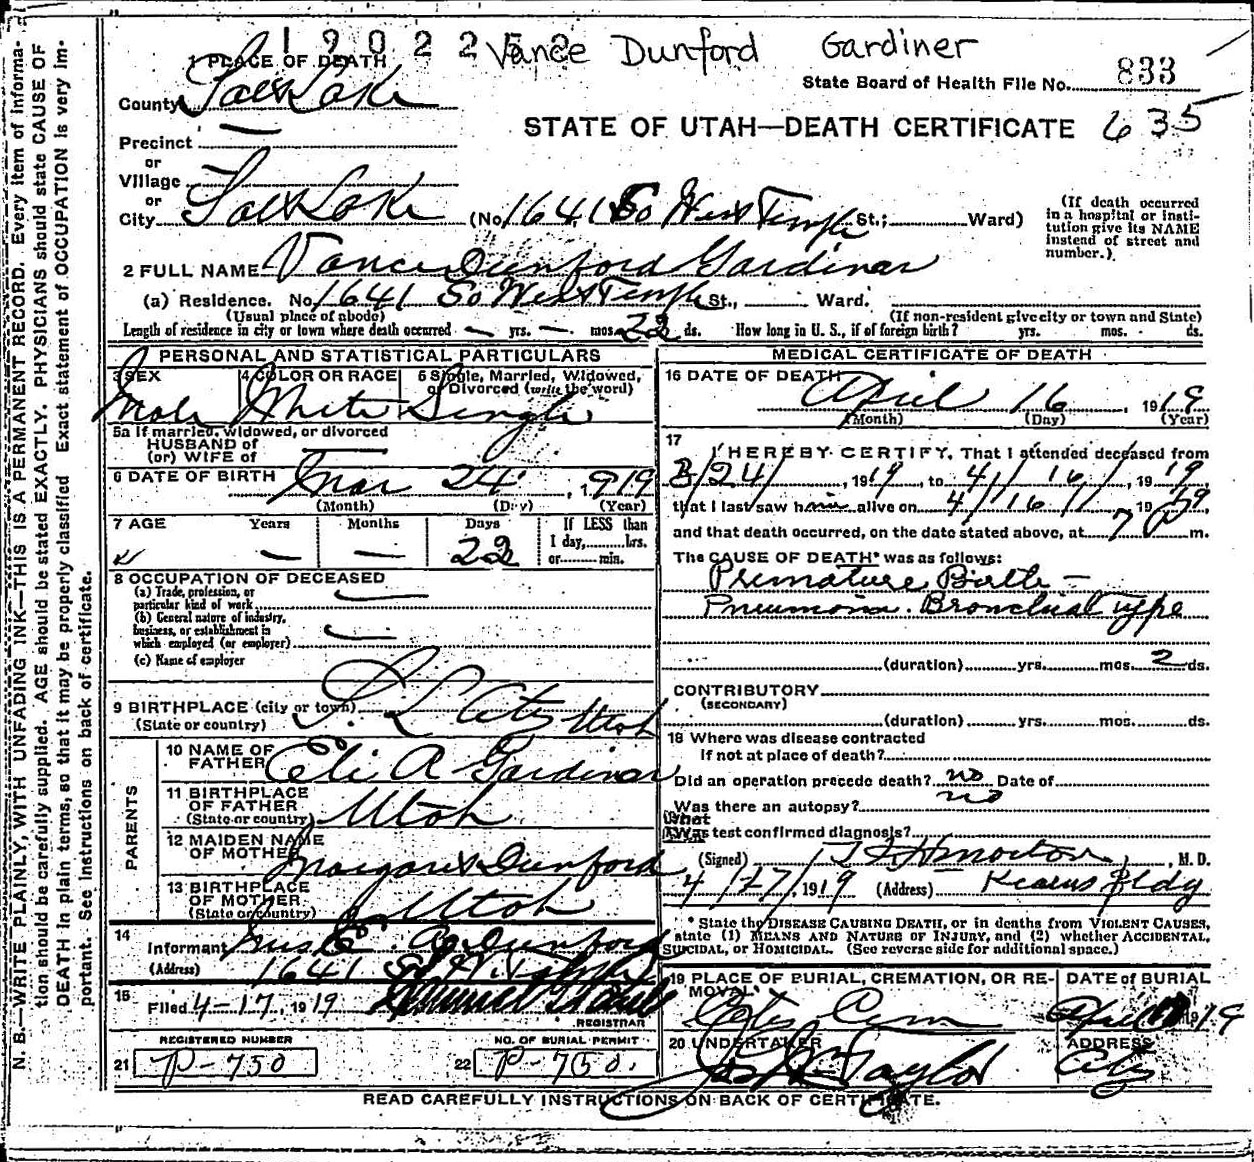 1902252 Vance Dunford Gardiner
State Board of Health File No. 833
635
STATE OF UTAH—DEATH CERTIFICATE
1 PLACE OF DEATH
County Salt Lake
Precinct —
or
Village
or
City Salt Lake (No. 1641 So West Temple St.; Ward)
(If death occurred in a hospital or institution give its NAME instead of street and number.)
2 FULL NAME Vance Dunford Gardiner
(a) Residence. No. 1641 So West Temple St., Ward.
(Usual place of abode) (If non-resident give city or town and State)
Length of residence in city or town where death occurred — yrs. — mos. 22 ds. How long in U. S., if of foreign birth? yrs. mos. ds.
PERSONAL AND STATISTICAL PARTICULARS
3 SEX 4 COLOR OR RACE 5 Single, Married, Widowed, or Divorced (write the word)
Male White Single
5a If married, widowed, or divorced
HUSBAND of
(or) WIFE of
6 DATE OF BIRTH Mar 24 , 1919
(Month) (Day) (Year)
7 AGE Years Months Days If LESS than
1 day, hrs.
— — 22 or min.
8 OCCUPATION OF DECEASED
(a) Trade, profession, or
particular kind of work —
(b) General nature of industry,
business, or establishment in
which employed (or employer) —
(c) Name of employer
9 BIRTHPLACE (city or town) S. L. City Utah
(State or country)
PARENTS
10 NAME OF FATHER Eli A Gardiner
11 BIRTHPLACE OF FATHER (State or country) Utah
12 MAIDEN NAME OF MOTHER Margaret Dunford
13 BIRTHPLACE OF MOTHER (State or country) Utah
14 Informant Dunford
(Address) 1641 So W. Temple
15 Filed 4-17, 1919
REGISTRAR
REGISTERED NUMBER NO. OF BURIAL PERMIT
21 P-750 22 P-750.
MEDICAL CERTIFICATE OF DEATH
16 DATE OF DEATH
April 16 , 1919
(Month) (Day) (Year)
17
I HEREBY CERTIFY, That I attended deceased from
3/24/ , 1919 , to 4/16/ , 1919,
that I last saw him alive on 4/16/ 1919,
and that death occurred, on the date stated above, at 7 P m.
The CAUSE OF DEATH* was as follows:
Premature Birth —
Pneumonia. Bronchial type
(duration) yrs. mos. 2 ds.
CONTRIBUTORY
(SECONDARY)
(duration) yrs. mos. ds.
18 Where was disease contracted
If not at place of death?
Did an operation precede death? no Date of
Was there an autopsy? no
What test confirmed diagnosis?
(Signed) Morton , M. D.
4/17/, 1919 (Address) Kearns Bldg
* State the DISEASE CAUSING DEATH, or in deaths from VIOLENT CAUSES,
state (1) MEANS AND NATURE OF INJURY, and (2) whether ACCIDENTAL,
SUICIDAL, or HOMICIDAL. (See reverse side for additional space.)
19 PLACE OF BURIAL, CREMATION, OR REMOVAL DATE of BURIAL
City Cem April 1919
20 UNDERTAKER ADDRESS
Jos. Wm Taylor City
READ CAREFULLY INSTRUCTIONS ON BACK OF CERTIFICATE.
N. B.—WRITE PLAINLY, WITH UNFADING INK—THIS IS A PERMANENT RECORD. Every item of informa-
tion should be carefully supplied. AGE should be stated EXACTLY. PHYSICIANS should state CAUSE OF
DEATH in plain terms, so that it may be properly classified. Exact statement of OCCUPATION is very im-
portant. See instructions on back of certificate.